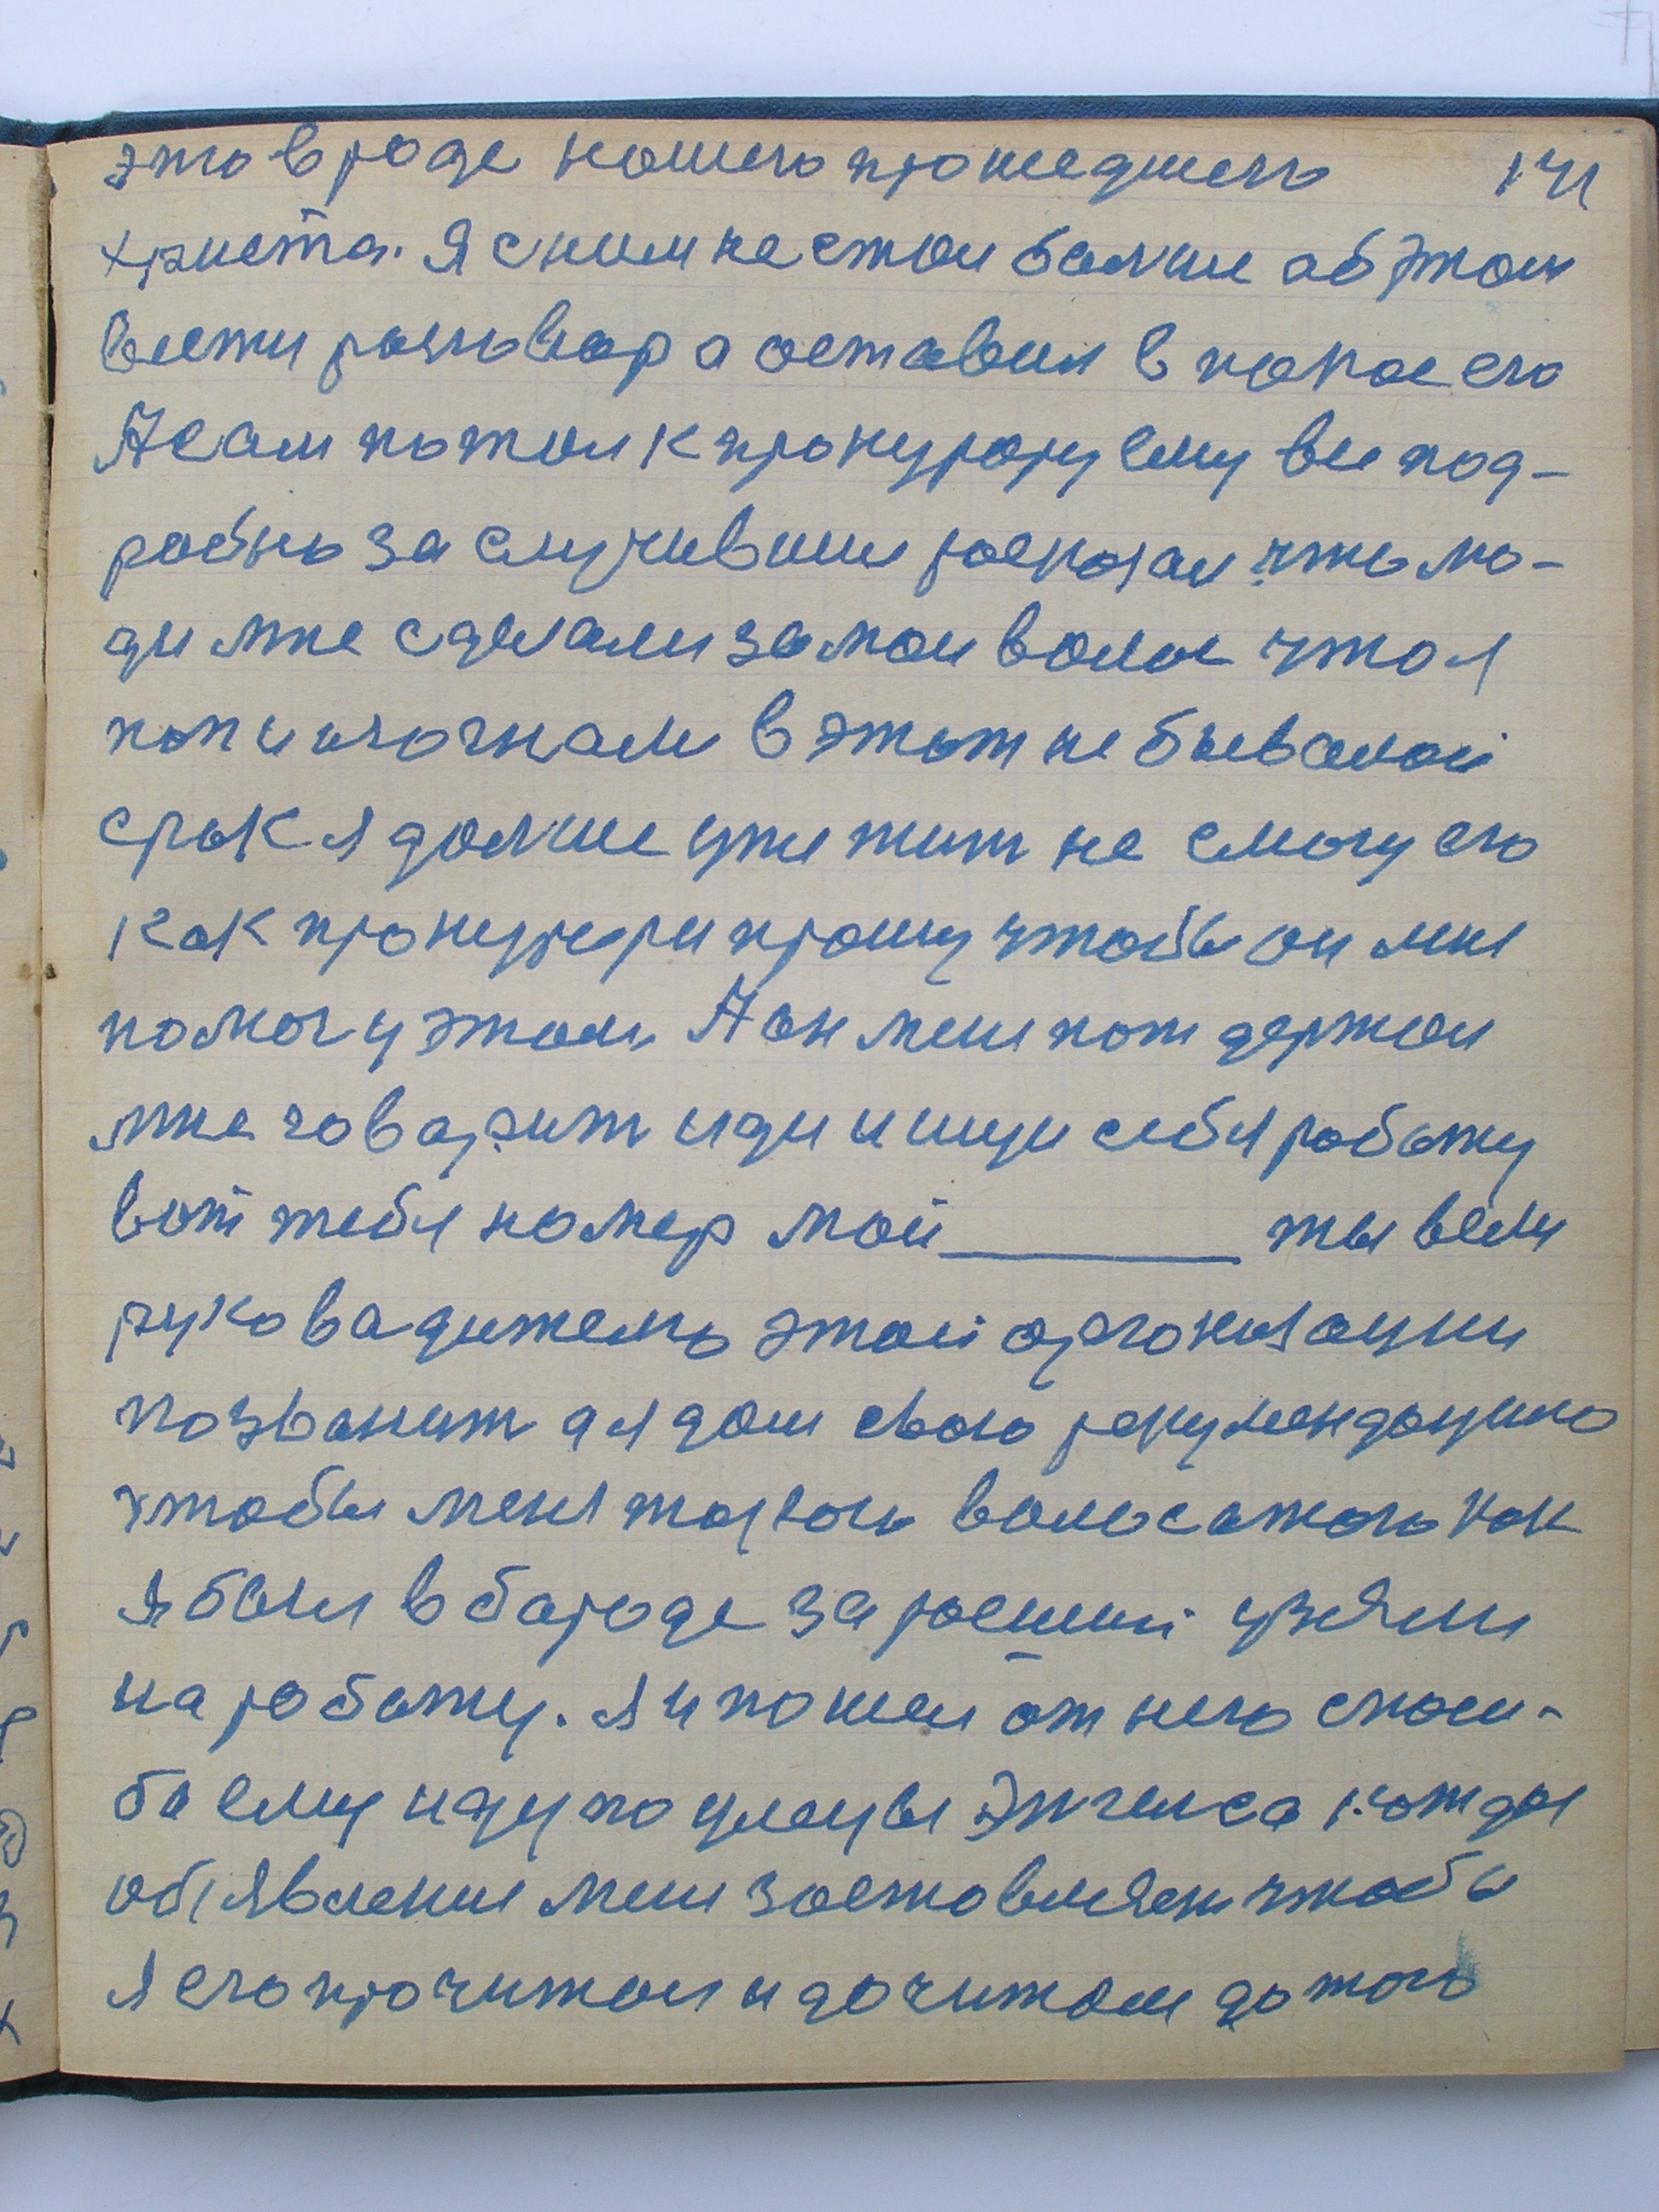 это в роде нашего прошедшего 141
христа. Я с ним не стал балше аб этом
вести разговар а оставил в покое его
А сам потом к пронурору ему все под-
робно за случивши росказал что лю-
ди мне сделали за мои волос что я
попи начнали в этот не бывалой
срок я долже уже жит не смогу его
как пронурури прошу чтобы он мня
помог у этом. А он меня пот держал
мне говарит иди и ищи себя работу
вот тебя номер мой ты вели
рукавадителю этой аргонизации
позванит а я дам свою рекумендацию
чтобы меня такого волосатого как
я был в бароде заросший узяли
на работу. я и пошел от него спаси-
ба ему иду по улецы Энгелса кождая
обявления меня заставляет чтобы
я его прочитал и дочитал до того